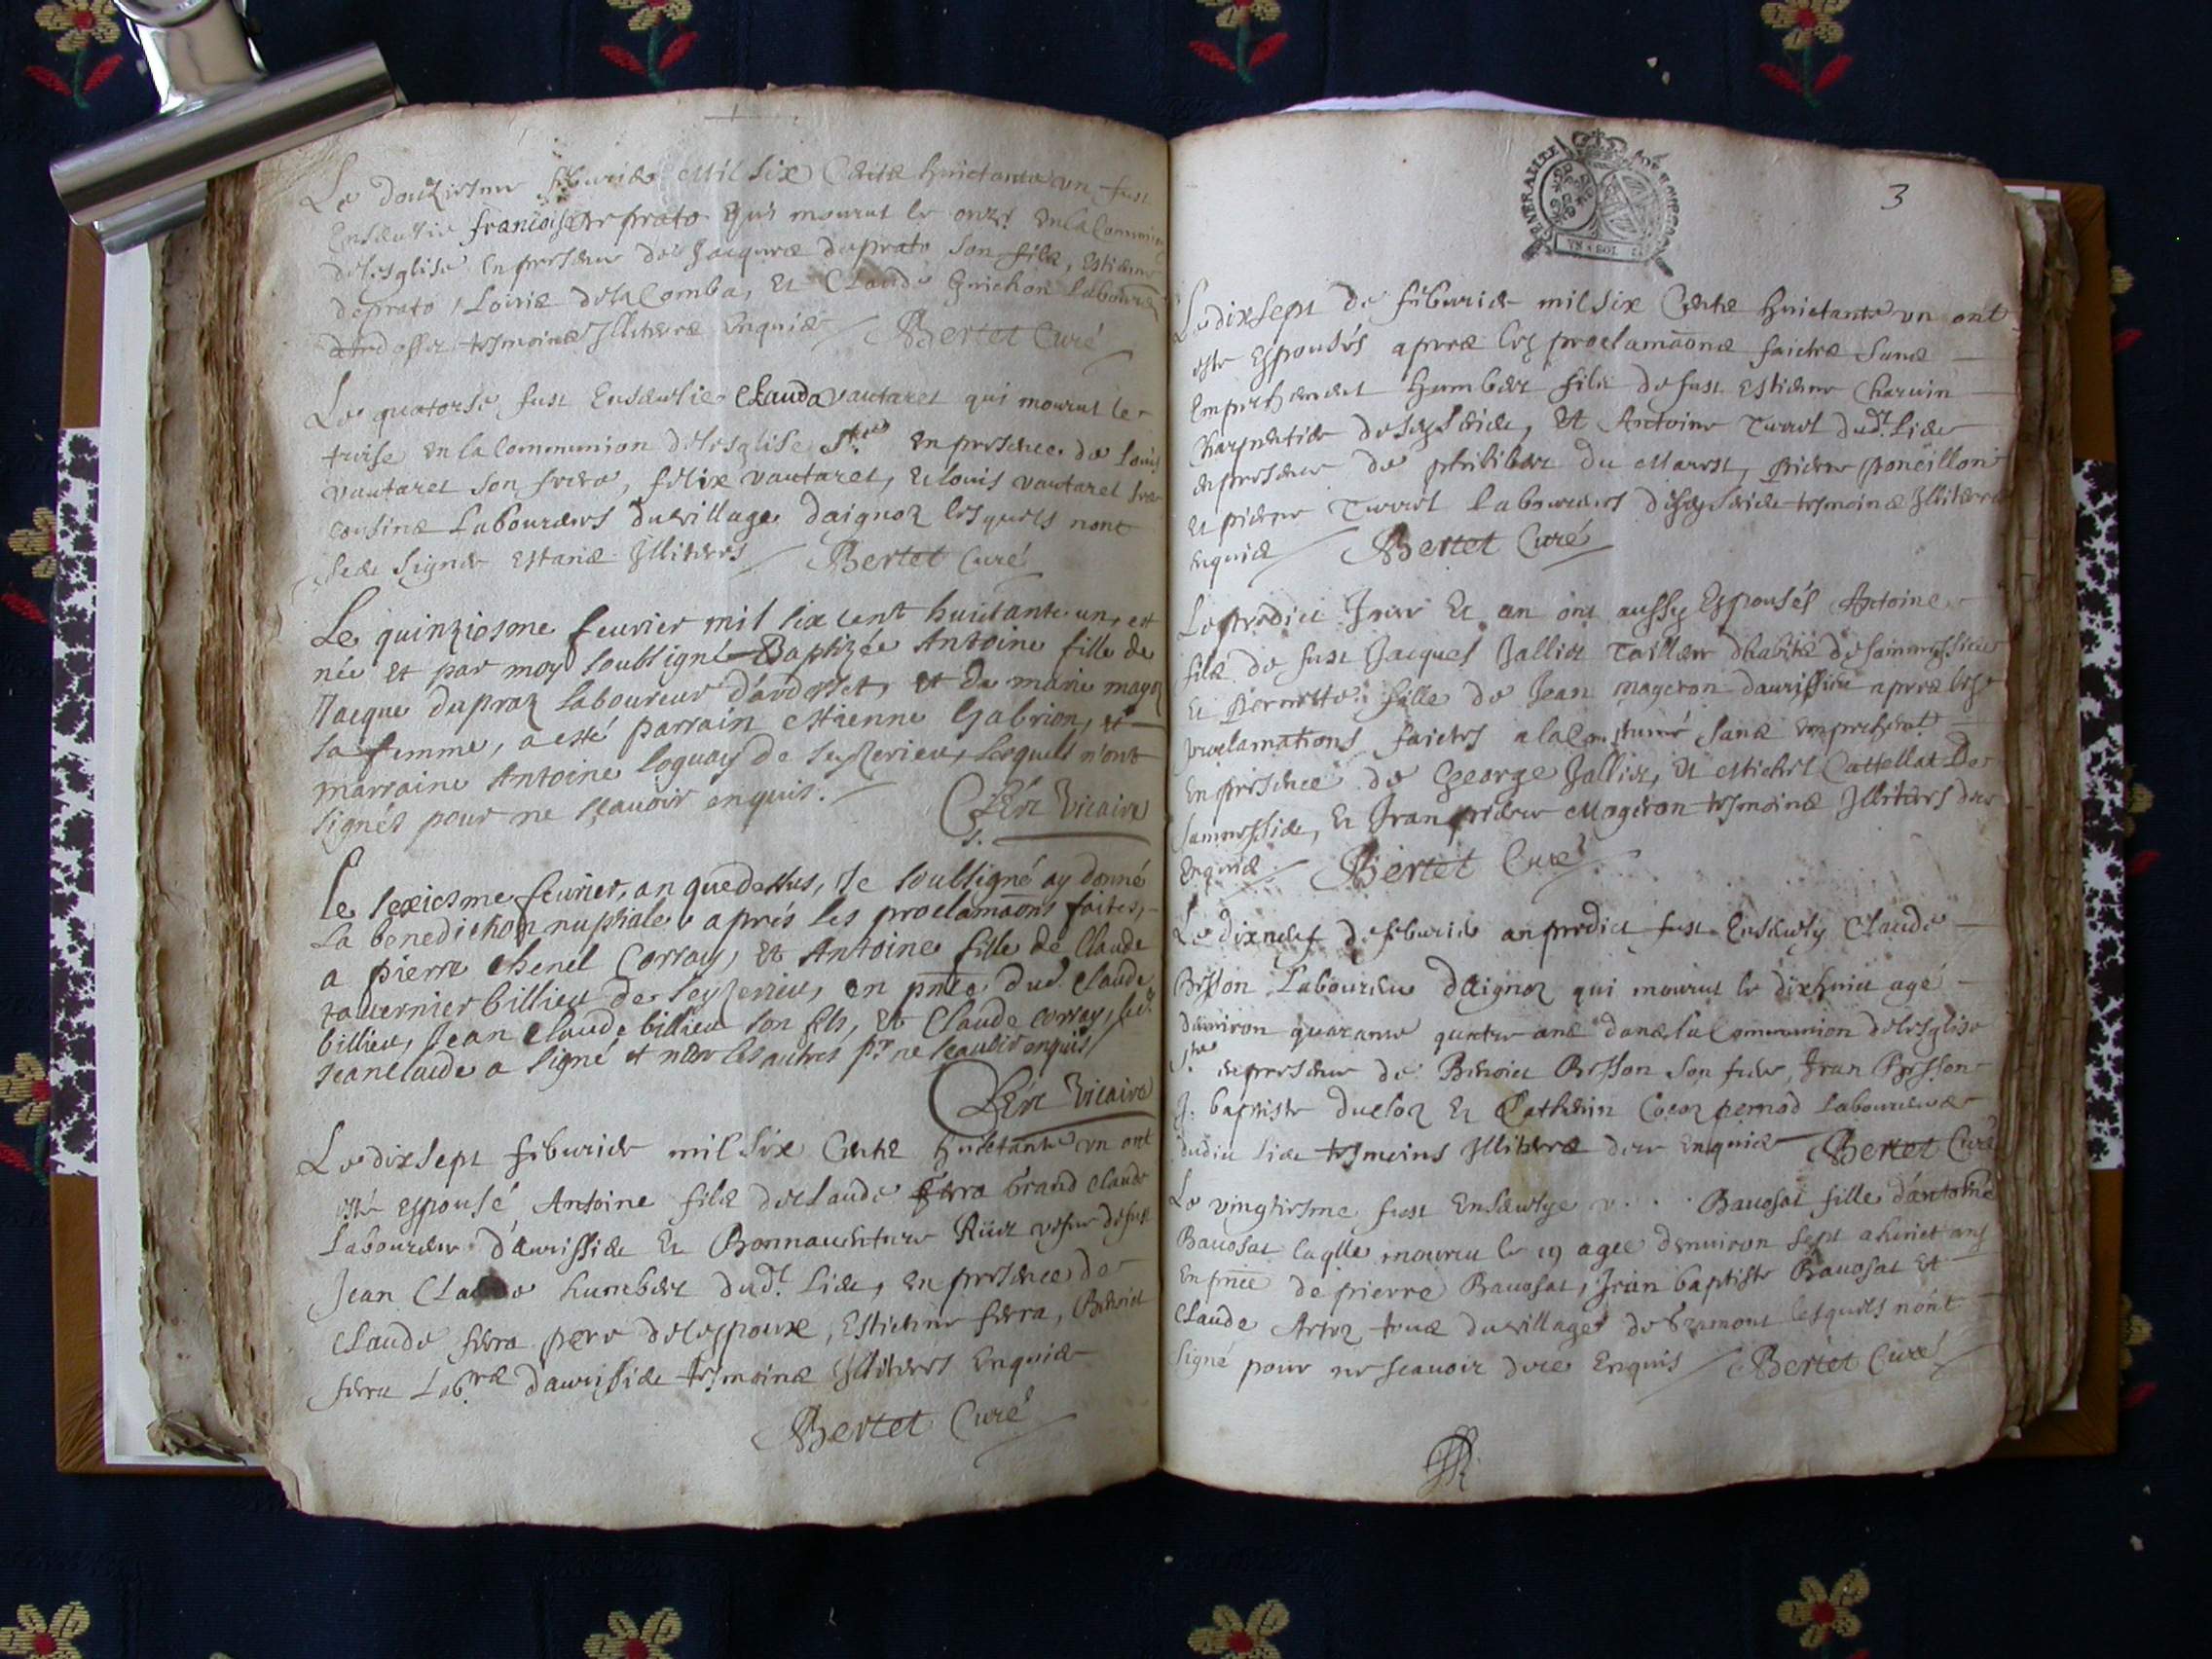 Le douziesme feburier Mil six Cents huictante un fust
Ensevelie francoise de prato qui mourut le onze en la Communion
de lesglise En presence de Jacques duprato son fils, Estienne
deprato, Louis de la Comba, Et Claude Guichon laboureurs
dardosset tesmoins Illiteres Enquis Bertet Curé
Le quatorse fust Ensevelie Clauda vautaret qui mourut le
treise en la Communion de lesglise Ste en presence de Louis
vautaret son frere, felix vautaret, Et louis vautaret ses
cousins Laboureurs du village daignoz lesquels nont
sceu signer Estans Illiteres Bertet Curé
Le quinziesme feurier mil six cent huictante un, est
née et par moy soubsigné Baptizée Antoine fille de
Jacque dupraz laboureur d'ardosset, et de marie
sa femme, a esté parrain estienne Gabrion, et
marraine Antoine loguay de seyzerieu, lesquels n'ont
signés pour ne sçauoir enquis. Léry Vicaire
Le sexiesme feurier, an que dessus, Je soubsigné ay donné
la benediction nuptiale aprés les proclamaons faites,
a pierre chenel Corray, et Antoine fille de Claude
tauernier billieu de seyzerieu, en pnce dud. Claude
billieu, Jean Claude billieu son fils, et Claude corray, led.
Jean Claude a signé et non les autres pr ne scauoir enquis
Léry Vicaire
Le dixsept feburier mil six Cents huictante un ont
esté espousé Antoine fils de Claude ferra Grand Claude
Laboureur d'aurissieu Et Bonnauenture vefue de fust
Jean Claude humbert dudt. lieu, en presence de
Claude ferra pere de lespoux, Estienne ferra, Benoict
ferra Labrs daurissieu tesmoins Illiteres Enquis
Bertet Curé
GENERALITE
UN SOL
3
Le dixsept de feburier mil six Cents huictante un ont
este Espousés apres les proclamaons faictes sans
Empechement humbert fils de fust Estienne Charuin
Charpentier de seyserieu, Et Antoine Turrel dudt. lieu
en presence de philibert du Marest, pierre poncillon
et pierre Turrel laboureurs de seyserieu tesmoins Illiteres
enquis Bertet Curé
Le predict Jour Et an ont aussy Espousés Antoine
fils de fust Jacques Jallier Tailleur dhabits
Et Pernette fille de Jean mogeron daurissieu apres les
proclamations faictes a la Coustume sans empechemt
En presence de George Jallier, Et Michel Castellat de
Et Jean pierre Mogeron tesmoins Illiteres deue
Enquis Bertet Curé
Le dixneuf de feburier an predict fust Enseuely Claude
Brisson Laboureur daignoz qui mourut le dixhuict agé
denuiron quarante quatre ans dans la Communion de lesglise
Ste en presence de Benoict Brisson son frere, Jean Brisson
J: baptiste ducloz Et Cathrin pernod laboureurs
dudict lieu tesmoins Illiteres deue enquis Bertet Curé
Le vingtiesme fust Enseuelye v. . . Bauosat fille dantoine
Bauosat laqlle mourut le 19 agee denuiron sept a huict ans
En pnce de pierre Bauosat, Jean baptiste Bauosat Et
Claude tous du village de lesquels nont
signé pour ne scauoir deue Enquis Bertet Curé